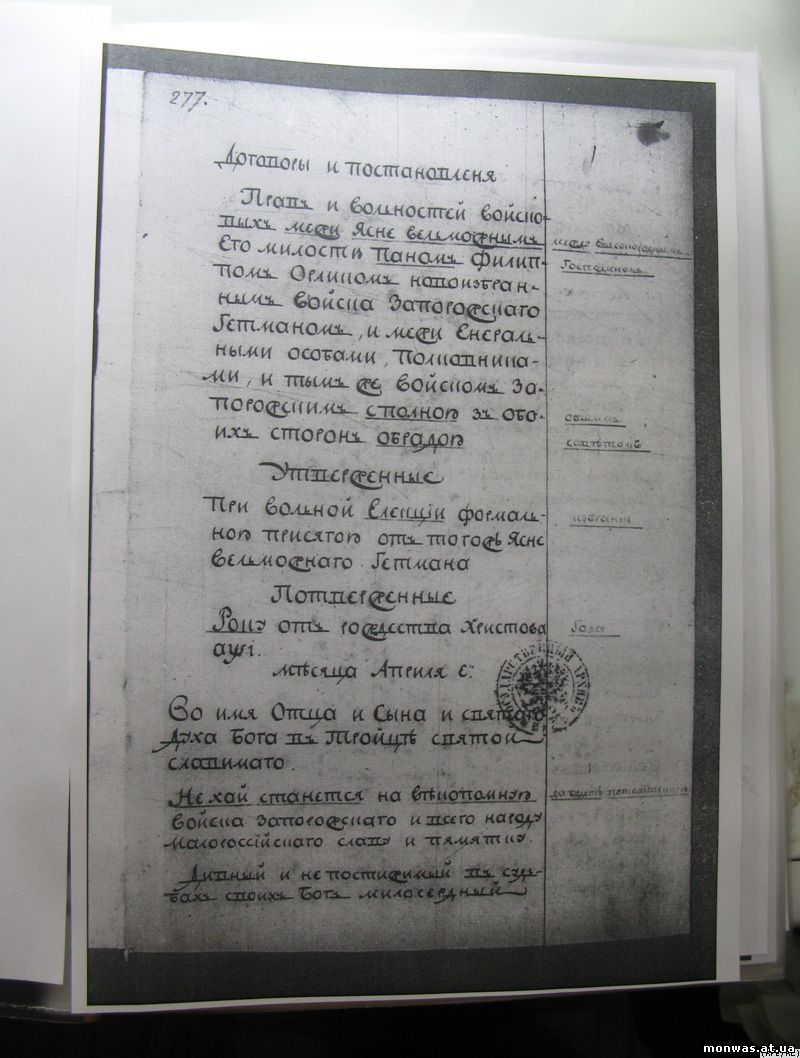 277.
Договоры и постановленя
Правъ и волностей войско-
выхъ межи Ясне велможнымъ
Его милостъ Паномъ Филип-
помъ Орликомъ новоизбран-
нымъ войска Запорожскаго
Гетманомъ, и межи Енераль-
ными особами, Полковника-
ми, и тымъ же войскомъ За-
порожскимъ сполною зъ обо-
ихъ сторонъ обрадою
Утверженные
При волной Елекціи формаль-
ною присягою отъ тогожъ Ясне
велможнаго Гетмана
Потверженные
Року отъ рождества Христова
аѱі.
мѣсяца Априля е:
Во имя Отца и Сына и святаго
Духа Бога въ Тройцѣ святой
славимаго.
Не хай станется на вѣкопомную
войска Запорожскаго и всего народу
малороссійскаго славу и памятку.
Дивный и непостижимый въ судь-
бахъ своихъ Богъ милосердный
между Высокороднымъ
Господиномъ
общимъ
совѣтомъ
избраніи
Года
да будетъ
ГОСУДАРСТВЕННЫЙ АРХИВ
monwas.at.ua